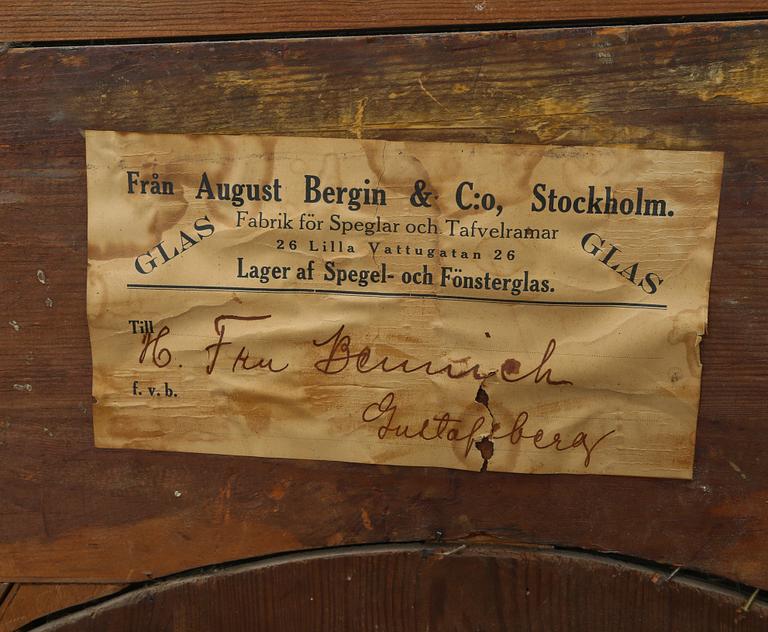 Från August Bergin & C:o, Stockholm.
Fabrik för Speglar och Tafvelramar
GLAS
GLAS
26 Lilla Vattugatan 26
Lager af Spegel- och Fönsterglas.
Till
H. Fru Bennich
f. v. b.
Gustafsberg